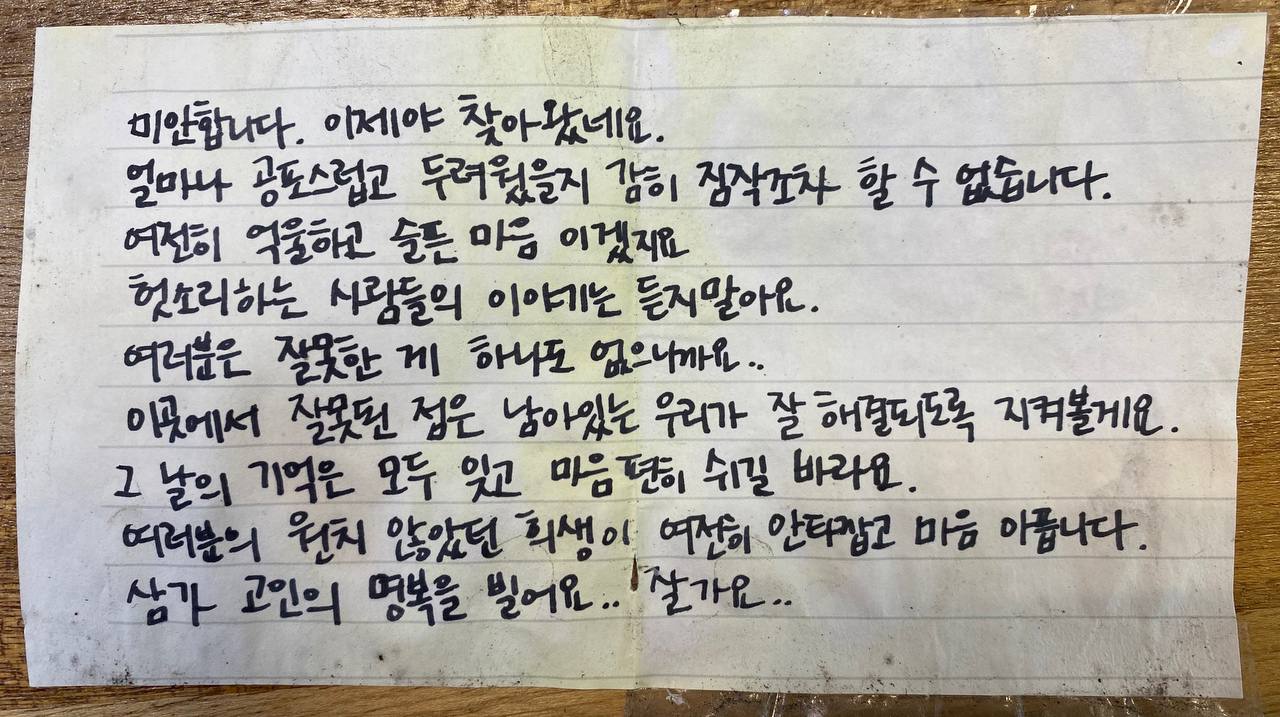 미안합니다. 이제야 찾아왔네요.
얼마나 공포스럽고 두려웠을지 감히 짐작조차 할 수 없습니다.
여전히 억울하고 슬픈 마음 이겠지요
헛소리하는 사람들의 이야기는 듣지말아요.
여러분은 잘못한 게 하나도 없으니까요..
이곳에서 잘못된 점은 남아있는 우리가 잘 해결되도록 지켜볼게요.
그 날의 기억은 모두 잊고 마음편히 쉬길 바라요.
여러분의 원치 않았던 희생이 여전히 안타깝고 마음 아픕니다.
삼가 고인의 명복을 빌어요.. 잘가요..